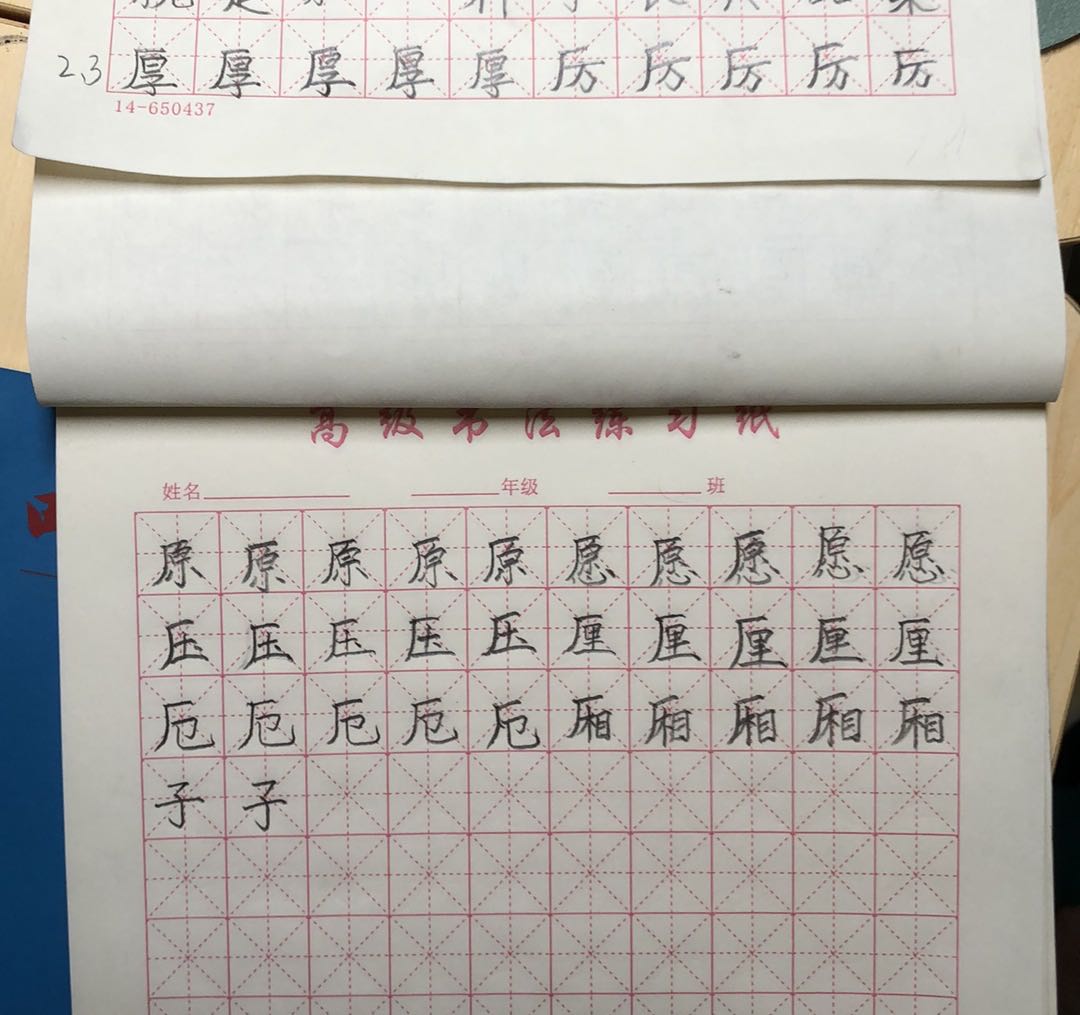 2、3 厚 厚 厚 厚 厚 厉 厉 厉 厉 厉
14-650437
高级书法练习纸
姓名 年级 班
原 原 原 原 原 愿 愿 愿 愿 愿
压 压 压 压 压 厘 厘 厘 厘 厘
厄 厄 厄 厄 厄 厢 厢 厢 厢 厢
子 子